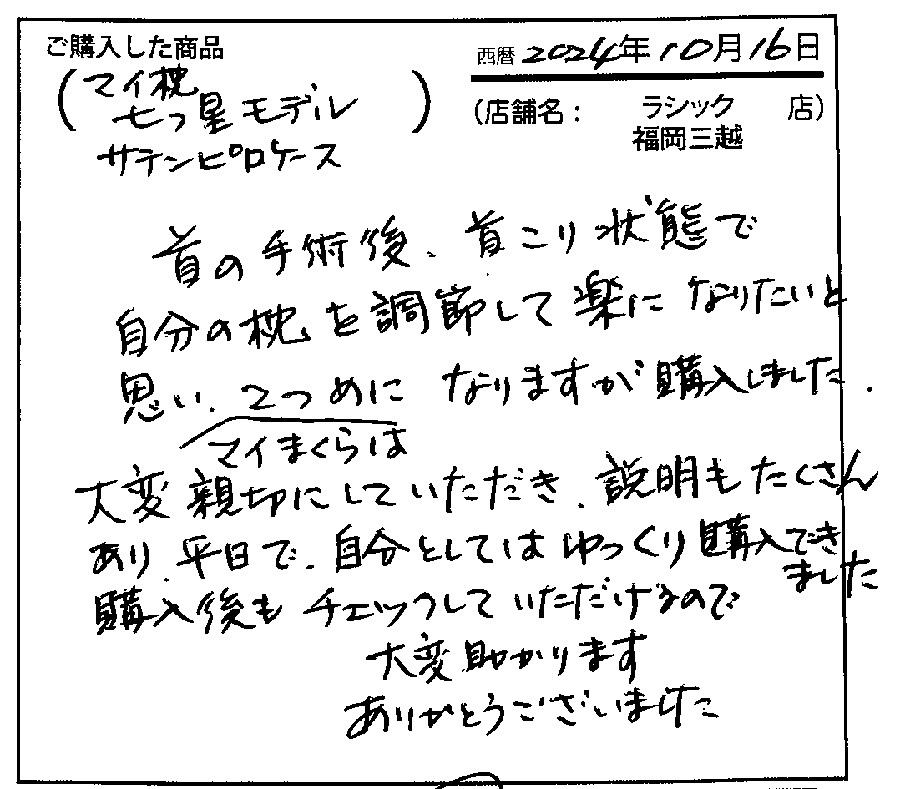 ご購入した商品
西暦 2024年10月16日
(マイ枕
七つ星モデル)
サテンピロケース
(店舗名： ラシック 店)
福岡三越
首の手術後、首こり状態で
自分の枕を調節して楽になりたいと
思い、2つめになりますが購入しました。
マイまくらは
大変親切にしていただき、説明もたくさん
あり、平日で、自分としてはゆっくり購入でき
ました
購入後もチェックしていただけるので
大変助かります
ありがとうございました